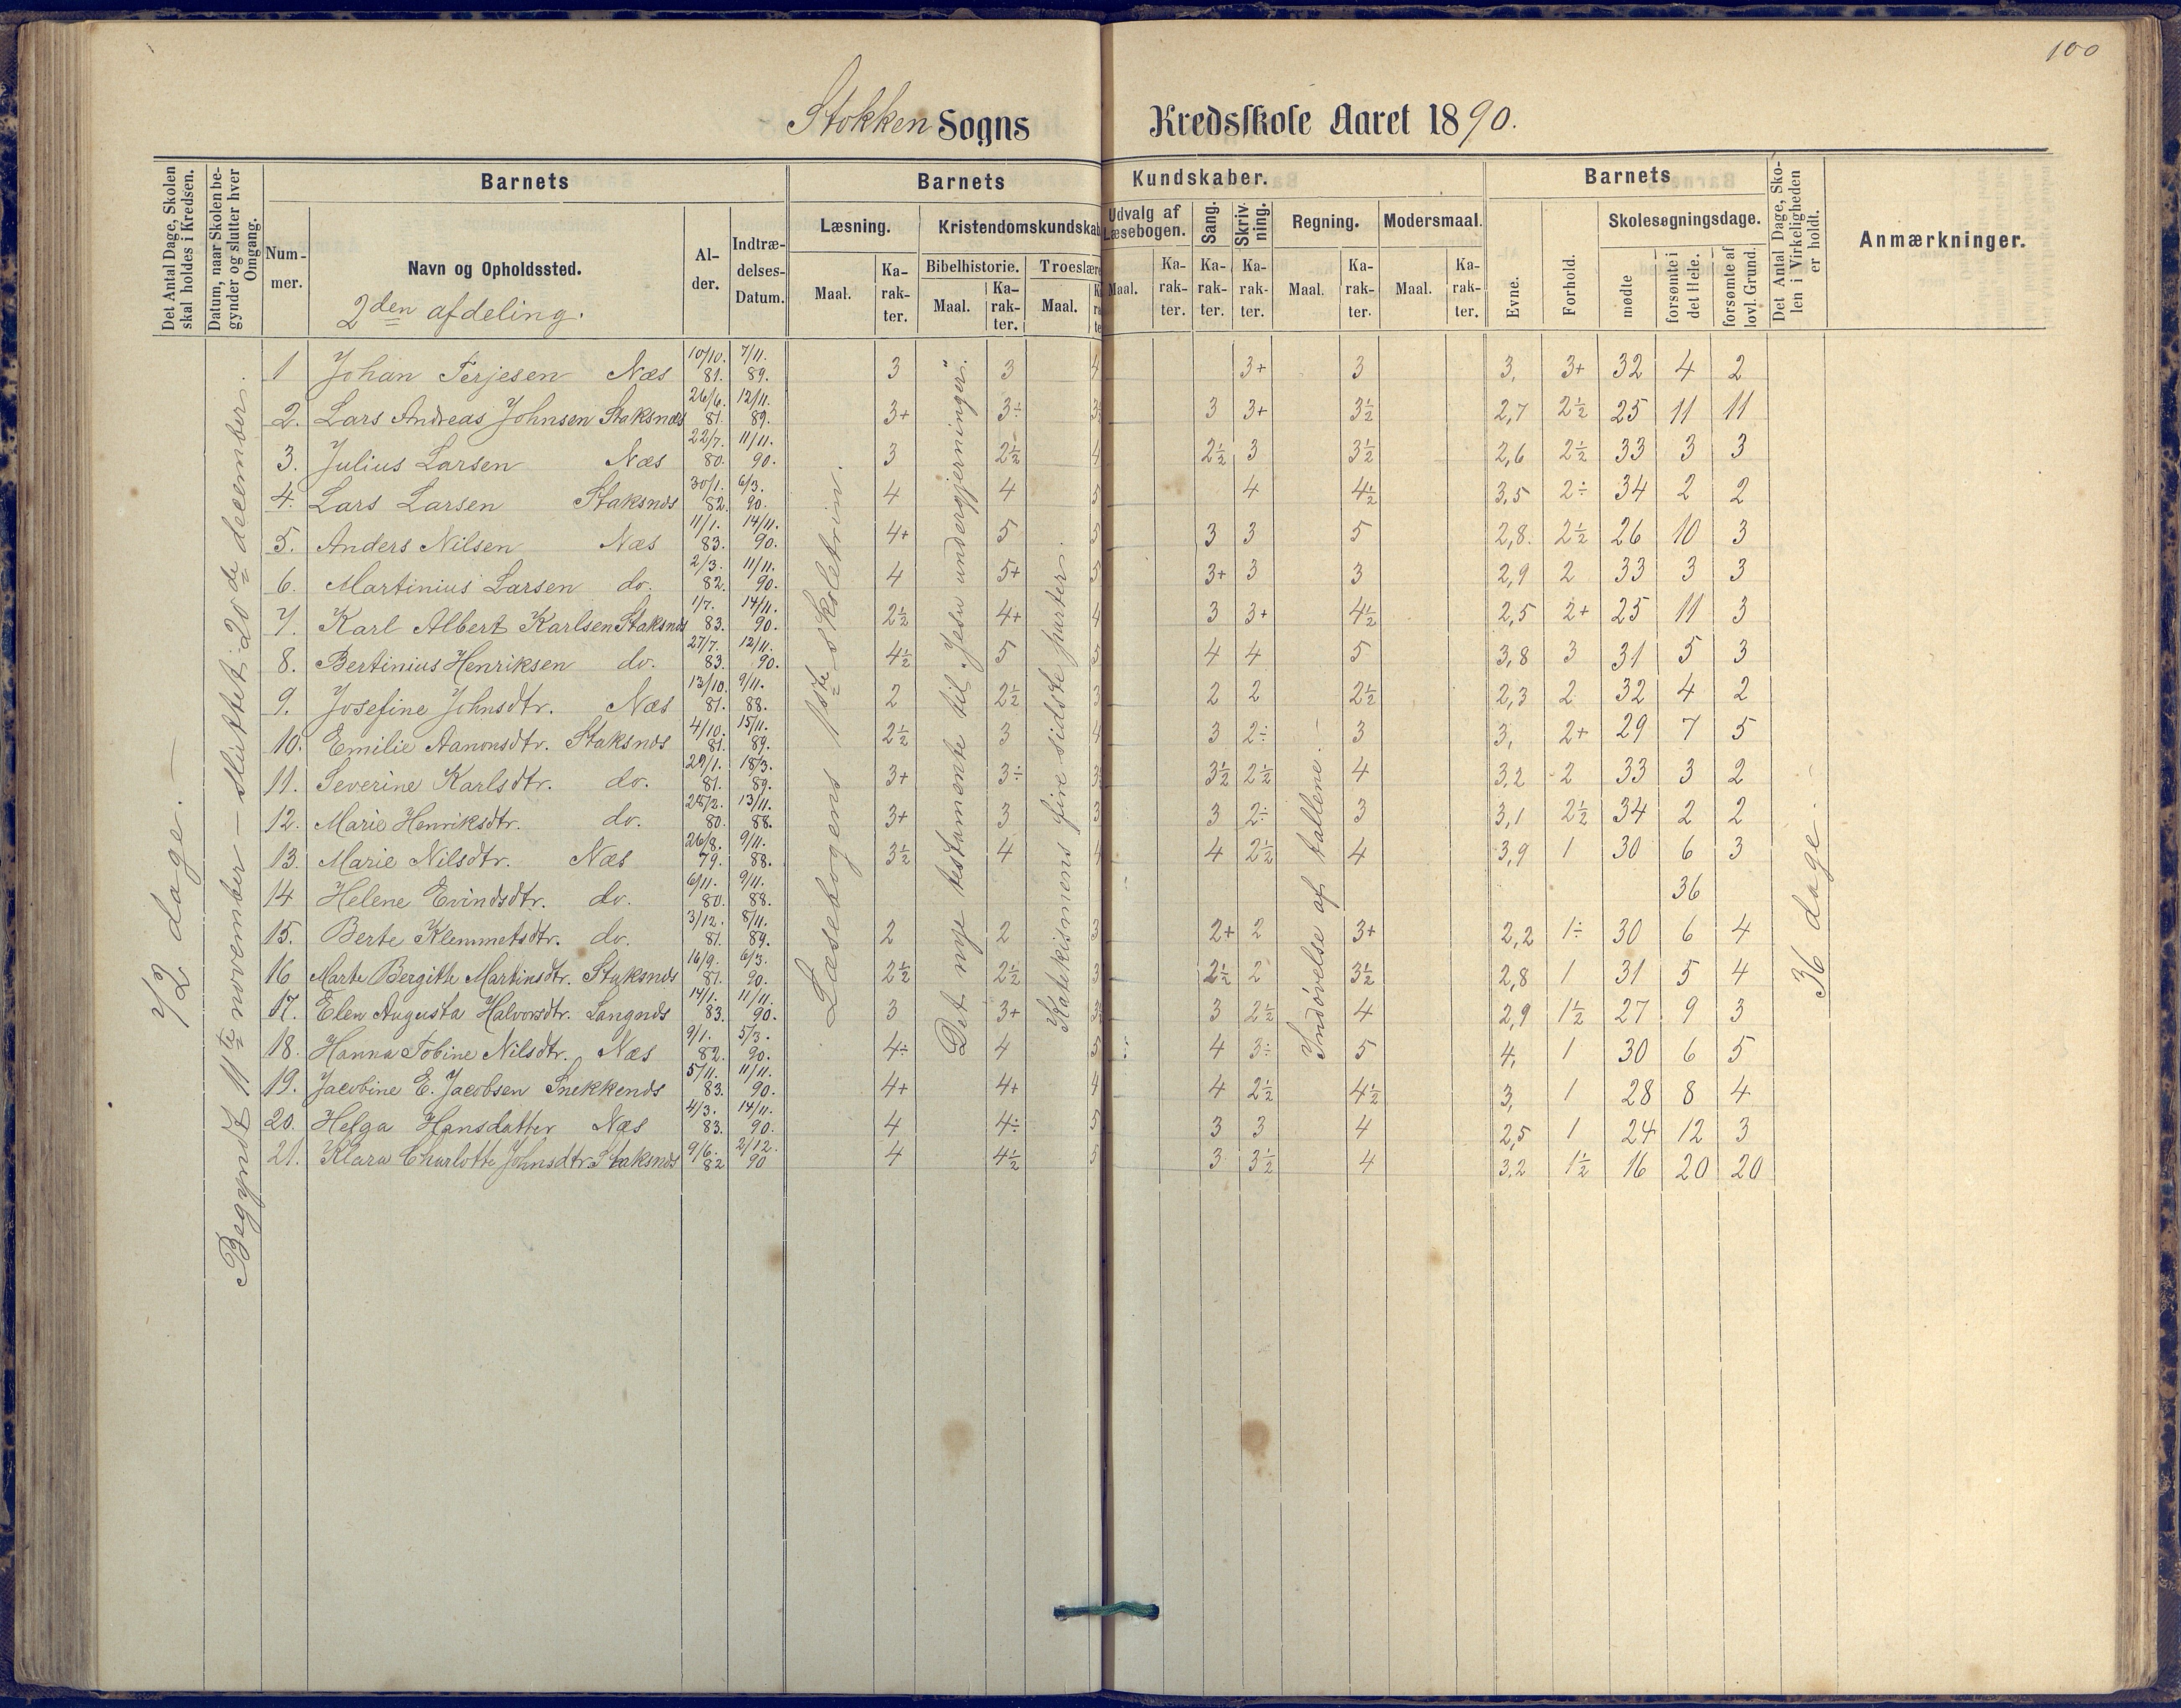 100
Stokken Sogns Kredsskole Aaret 1890.
Det Antal Dage, Skolen skal holdes i Kredsen.
Datum, naar Skolen begynder og slutter hver Omgang.
Barnets
Nummer.
Navn og Opholdssted.
2den afdeling.
Alder.
Indtrædelses-Datum.
Barnets Kundskaber.
Læsning. Kristendomskundskab Udvalg af Læsebogen. Sang. Skrivning. Regning. Modersmaal.
Bibelhistorie. Troeslære
Maal. Karakter. Maal. Karakter. Maal. Maal. Karakter. Karakter. Karakter. Maal. Karakter. Maal. Karakter.
Barnets
Evne. Forhold. Skolesøgningsdage.
mødte forsømte i det Hele. forsømte af lovl. Grund.
Det Antal Dage, Skolen i Virkeligheden er holdt.
Anmærkninger.
72 dage. —
Begyndt 11te november — sluttet 20de december.
Læsebogens 1ste skoletrin.
Det nye testamente til „Jesu undergjerninger".
Katekismens fire sidste parter.
Indøvelse af tallene.
36 dage. —
1 Johan Terjesen Næs 10/10. 81. 7/11. 89. 3 3 4 3+ 3 3, 3+ 32 4 2
2. Lars Andreas Johnsen Staksnæs 26/6. 81. 12/11. 89. 3+ 3÷ 3 3+ 3½ 2,7 2½ 25 11 11
3. Julius Larsen Næs 22/7. 80. 11/11. 90. 3 2½ 4 2½ 3 3½ 2,6 2½ 33 3 3
4. Lars Larsen Staksnæs 30/1. 82. 6/3. 90. 4 4 5 4 4½ 3,5 2÷ 34 2 2
5. Anders Nilsen Næs 11/1. 83. 14/11. 90. 4+ 5 5 3 3 5 2,8. 2½ 26 10 3
6. Martinius Larsen do. 2/3. 82. 11/11. 90. 4 5+ 5 3+ 3 3 2,9 2 33 3 3
7. Karl Albert Karlsen Staksnæs 1/7. 83. 14/11. 90. 2½ 4+ 4 3 3+ 4½ 2,5 2+ 25 11 3
8. Bertinius Henriksen do. 27/7. 83. 12/11. 90. 4½ 5 5 4 4 5 3,8 3 31 5 3
9. Josefine Johnsdtr. Næs 13/10. 81. 9/11. 88. 2 2½ 3 2 2 2½ 2,3 2 32 4 2
10. Emilie Aanonsdtr. Staksnæs 4/10. 81. 15/11. 89. 2½ 3 4 3 2÷ 3 3, 2+ 29 7 5
11. Severine Karlsdtr. do. 29/1. 81. 18/3. 89. 3+ 3÷ 3½ 2½ 4 3,2 2 33 3 2
12. Marie Henriksdtr. do. 28/2. 80. 13/11. 88. 3+ 3 3 3 2÷ 3 3,1 2½ 34 2 2
13. Marie Nilsdtr. Næs 26/8. 79. 9/11. 88. 3½ 4 4 4 2½ 4 3,9 1 30 6 3
14 Helene Evindsdtr. do. 6/11. 80. 9/11. 88. 36
15. Berte Klemmetsdtr. do. 3/12. 81. 8/11. 89. 2 2 3 2+ 2 3+ 2,2 1÷ 30 6 4
16 Marte Bergitte Martinsdtr. Staksnæs 16/9. 81. 6/3. 90. 2½ 2½ 3 2½ 2 3½ 2,8 1 31 5 4
17. Elen Augusta Halvorsdtr. Langnæs 14/1. 83. 11/11. 90. 3 3+ 3 2½ 4 2,9 1½ 27 9 3
18. Hanna Tobine Nilsdtr. Næs 9/1. 82. 5/3. 90. 4÷ 4 5 4 3÷ 5 4, 1 30 6 5
19. Jacobine E. Jacobsen Snekkenæs 5/11. 83. 11/11. 90. 4+ 4+ 4 4 2½ 4½ 3, 1 28 8 4
20. Helga Hansdatter Næs 4/3. 83. 14/11. 90. 4 4÷ 5 3 3 4 2,5 1 24 12 3
21. Klara Charlotte Johnsdtr. Staksnæs 9/6. 82 2/12. 90 4 4½ 5 3 3½ 4 3,2 1½ 16 20 20